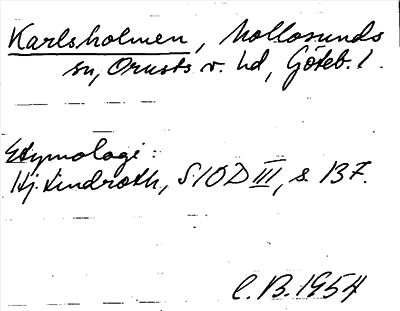 Karlsholmen, Mollösunds
sn, Orusts v. hd, Göteb. l.
Etymologi:
Hj. Lindroth, SIOD III, s. 137.
C. B. 1954